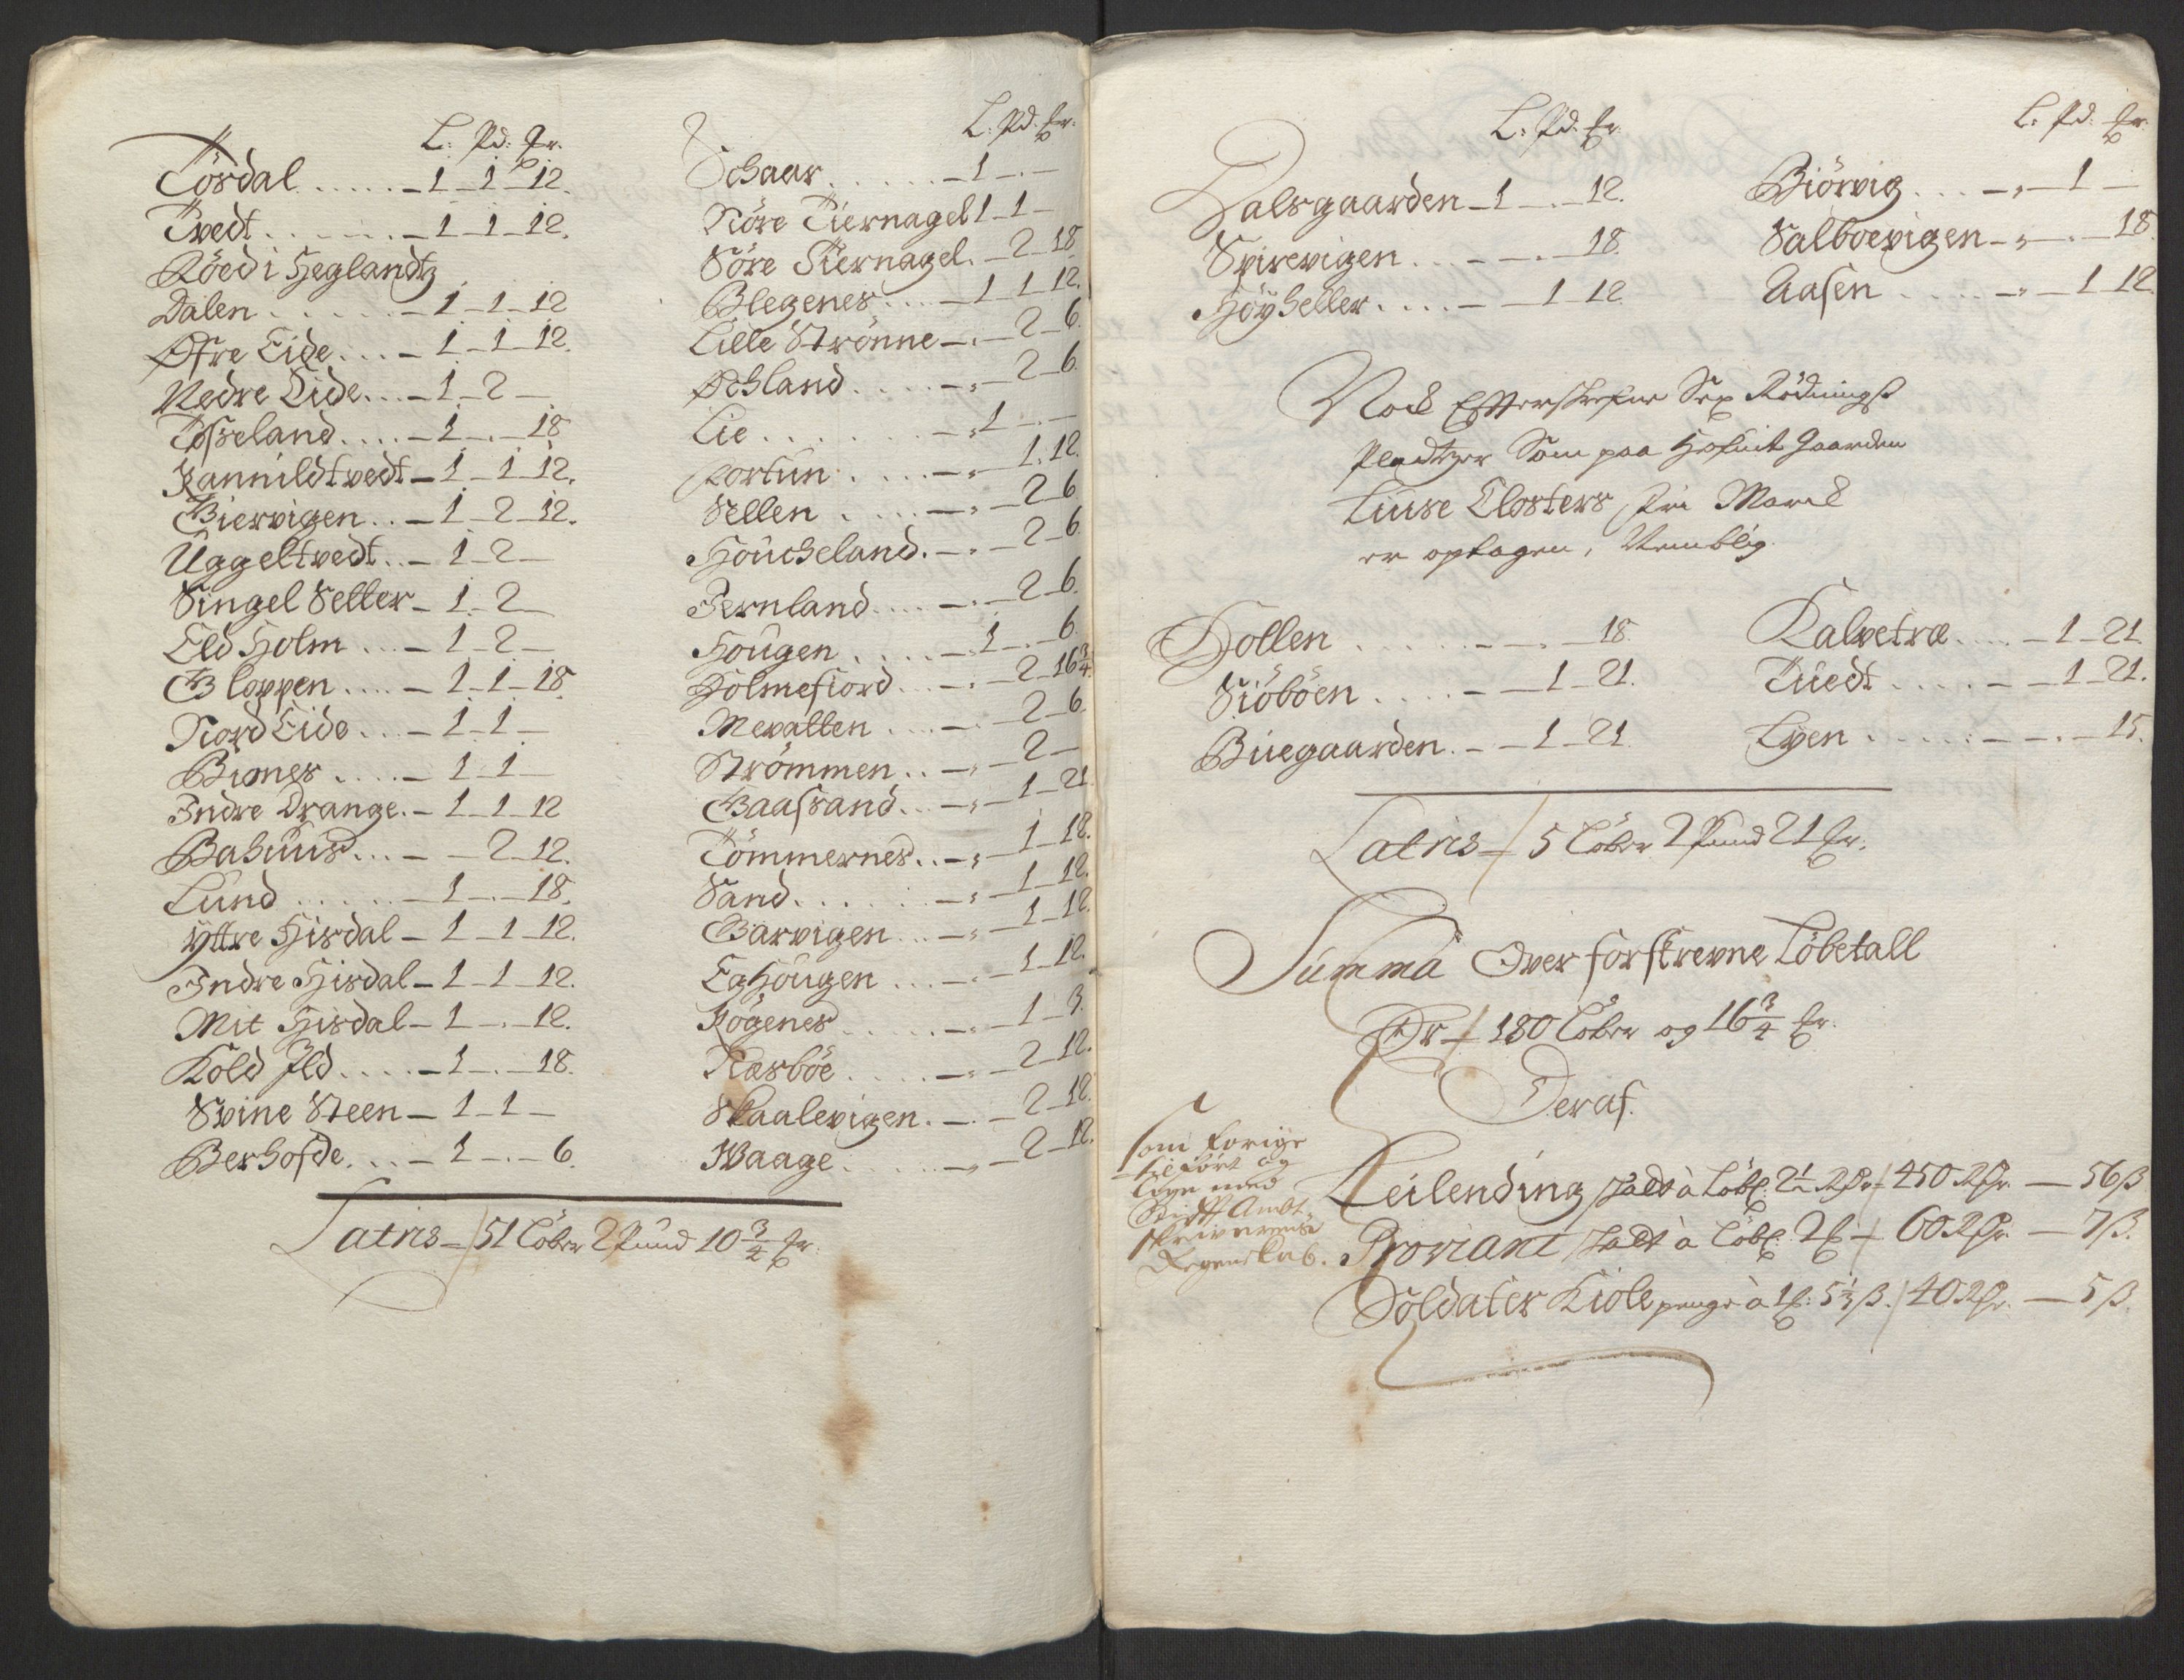 L: Pd: Fr.
Tösdal . . . . . 1 - 1 - 12.
Tvedt . . . . . 1 - 1 - 12.
Röed i Heglandtz
Dalen . . . . . 1 - 1 - 12
Øfre Eide . . . 1 - 1 - 12.
Nedre Eide . . . 1 - 2 -
Tosseland . . . . 1 - . - 18
Rannildtvedt - 1 - 1 - 12.
Giervigen . . - 1 - 2 - 12.
Uggeltvedt . . - 1 - 2 -
Singel Setter - 1 - 2 -
Eld Holm . . . - 1 - 2 -
Gloppen . . . . - 1 - 1 - 18
Nord Eide . . . - 1 - 1 -
Bimes . . . . - 1 - 1 -
Indre Drange . - 1 - 1 - 12
Bahuus . . . - - 2 - 12.
Lund . . . . . 1 - . - 18.
Yttre Hisdal - 1 - 1 - 12.
Indre Hisdal - 1 - 1 - 12.
Mit Hisdal - 1 - . - 12.
Kold Ild . . . . - 1 - . - 18.
Svine Steen - 1 - 1 -
Berhofde . . . - 1 - . - 6.
L: Pd: Fr.
Schaar . . . . . - 1 - . -
Nöre Tiernagel 1 - 1 -
Söre Tiernagel . - 2 - 18
Blegenes . . . - 1 - 1 - 12.
Lille Strönne - . - 2 - 6.
Øchland . . . . - 2 - 6.
Lie . . . . . . - 1 - . -
Fortun . . . . - 1 - 12.
Sellen . . . . - 2 - 6
Houcheland . - . - 2 - 6.
Jernland . . . . - 2 - 6.
Hougen . . . . - 1 - . - 6
Holmefiord . . . - . - 2 - 16 3/4.
Mevatten . . . . - 2 - 6.
Strömmen . . - . - 2 -
Gaassand . . . - 1 - 21
Tömmernes . . - 1 - 18.
Sand . . . . . - 1 - 12.
Garvigen . . . - 1 - 12
Eghougen . . . - 1 - 12.
Rögenes . . . . - . - 1 - 3.
Næsböe . . . . - 2 - 12.
Skaalevigen . - . - 2 - 12.
Waage . . . . . - 2 - 12.
Latris - 51 Löber 2 Pund 10 3/4 fr:
L: Pd: Fr.
Dalsgaarden - 1 - . - 12.
Svirevigen . . . - - . - 18.
Höyheller . . . . - - 1 - 12.
L: Pd: Fr.
Biörvig . . . - - 1 -
Salboevigen - . - 18.
Aasen . . . . - - 1 - 12.
Noch Efterskrefne Sex Rödnings
Pladtzer Som paa Hofuit Gaarden
Liuse Closters fri March
er optagen, Nemblig.
Hollen . . . . . - - . - 18
Siöböen . . . . - - 1 - 21.
Buegaarden . - - 1 - 21.
Kalvetræ . . . . - 1 - 21
Tuedt . . . . - - 1 - 21.
Lyen . . . . . - . - 15.
Latris - 5 Löber 2 Pund 21 fr.
Summa Over forskrevne Löbetall
Er - 180 Löber og 16 3/4 fr.
Deraf.
Som forige
tilfört og
Ligner med
Ambt
skriverens
Regenskab.
Leilending skatt à Löb: 2½ Rdr - 450 Rdr. - 56 ß
Proviant skatt à Löb: 2 - 60 Rdr. - 7 ß.
Soldater Kiole penge à 1: 5 1/3 ß. 40 Rdr. - 5 ß.